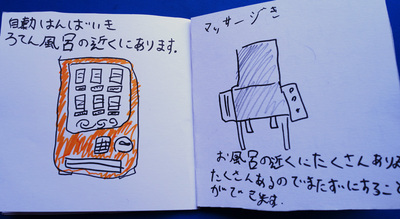 自動はんばいき
ろてん風呂の近くにあります.
マッサージき
お風呂の近くにたくさんありま
たくさんあるのでまたずにすること
ができます.